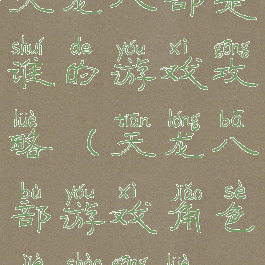 天龙八部是
shuí de yóu xì gōng
谁的游戏攻
lüè tiān lóng bā
略（天龙八
bù yóu xì jiǎo sè
部游戏角色
jiè shào gōng lüè